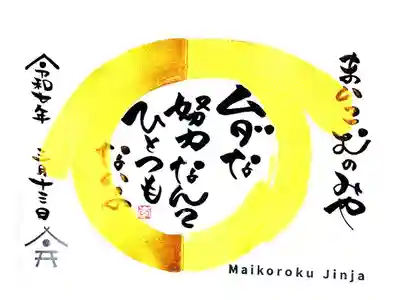 まいこむのみや
ムダな
努力なんて
ひとつも
令和七年 三月十三日
Maikoroku Jinja